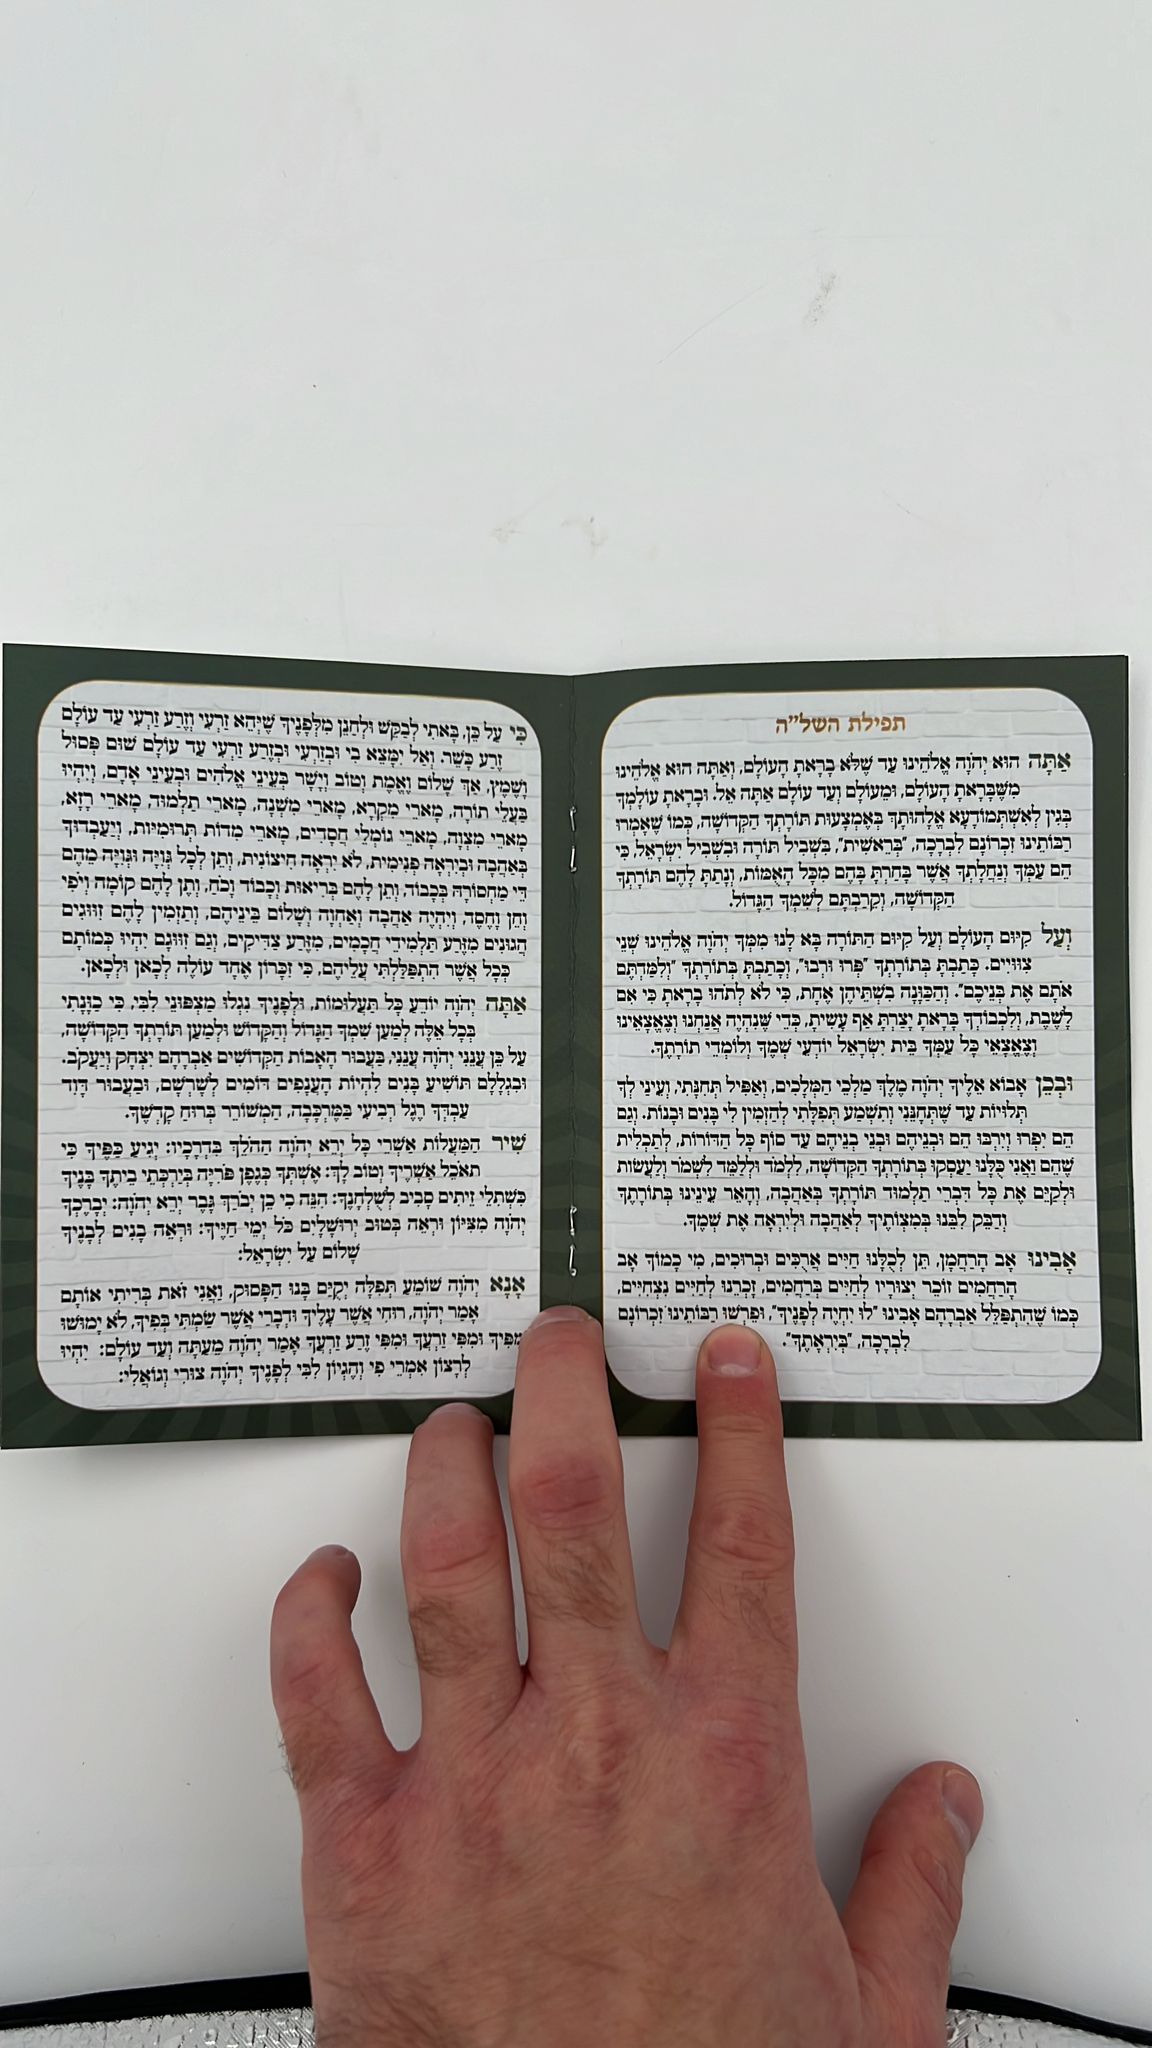 תפילת השל״ה
אַתָּה הוּא יְהֹוָה אֱלֹהֵינוּ עַד שֶׁלֹּא בָרָאתָ הָעוֹלָם, וְאַתָּה הוּא אֱלֹהֵינוּ
מִשֶּׁבָּרָאתָ הָעוֹלָם, וּמֵעוֹלָם וְעַד עוֹלָם אַתָּה אֵל. וּבָרָאתָ עוֹלָמְךָ
בְּגִין לְאִשְׁתְּמוֹדְעָא אֱלָהוּתָךְ בְּאֶמְצָעוּת תּוֹרָתְךָ הַקְּדוֹשָׁה, כְּמוֹ שֶׁאָמְרוּ
רַבּוֹתֵינוּ זִכְרוֹנָם לִבְרָכָה, ״בְּרֵאשִׁית״, בִּשְׁבִיל תּוֹרָה וּבִשְׁבִיל יִשְׂרָאֵל, כִּי
הֵם עַמְּךָ וְנַחֲלָתְךָ אֲשֶׁר בָּחַרְתָּ בָּהֶם מִכָּל הָאֻמּוֹת, וְנָתַתָּ לָהֶם תּוֹרָתְךָ
הַקְּדוֹשָׁה, וְקֵרַבְתָּם לְשִׁמְךָ הַגָּדוֹל.
וְעַל קִיּוּם הָעוֹלָם וְעַל קִיּוּם הַתּוֹרָה בָּא לָנוּ מִמְּךָ יְהֹוָה אֱלֹהֵינוּ שְׁנֵי
צִוּוּיִים. כָּתַבְתָּ בְּתוֹרָתְךָ ״פְּרוּ וּרְבוּ״, וְכָתַבְתָּ בְּתוֹרָתְךָ ״וְלִמַּדְתֶּם
אֹתָם אֶת בְּנֵיכֶם״. וְהַכַּוָּנָה בִּשְׁתֵּיהֶן אֶחָת, כִּי לֹא לְתֹהוּ בָרָאתָ כִּי אִם
לָשֶׁבֶת, וְלִכְבוֹדְךָ בָּרָאתָ יָצַרְתָּ אַף עָשִׂיתָ, כְּדֵי שֶׁנִּהְיֶה אֲנַחְנוּ וְצֶאֱצָאֵינוּ
וְצֶאֱצָאֵי כָּל עַמְּךָ בֵּית יִשְׂרָאֵל יוֹדְעֵי שְׁמֶךָ וְלוֹמְדֵי תוֹרָתֶךָ.
וּבְכֵן אָבוֹא אֵלֶיךָ יְהֹוָה מֶלֶךְ מַלְכֵי הַמְּלָכִים, וְאַפִּיל תְּחִנָּתִי, וְעֵינַי לְךָ
תְּלוּיוֹת עַד שֶׁתְּחָנֵּנִי וְתִשְׁמַע תְּפִלָּתִי לְהַזְמִין לִי בָּנִים וּבָנוֹת. וְגַם
הֵם יִפְרוּ וְיִרְבּוּ הֵם וּבְנֵיהֶם וּבְנֵי בְנֵיהֶם עַד סוֹף כָּל הַדּוֹרוֹת, לְתַכְלִית
שֶׁהֵם וַאֲנִי כֻּלָּנוּ יַעַסְקוּ בְּתוֹרָתְךָ הַקְּדוֹשָׁה, לִלְמֹד וּלְלַמֵּד לִשְׁמֹר וְלַעֲשׂוֹת
וּלְקַיֵּם אֶת כָּל דִּבְרֵי תַלְמוּד תּוֹרָתְךָ בְּאַהֲבָה, וְהָאֵר עֵינֵינוּ בְּתוֹרָתֶךָ
וְדַבֵּק לִבֵּנוּ בְּמִצְוֹתֶיךָ לְאַהֲבָה וּלְיִרְאָה אֶת שְׁמֶךָ.
אָבִינוּ אָב הָרַחֲמָן, תֵּן לְכֻלָּנוּ חַיִּים אֲרֻכִּים וּבְרוּכִים, מִי כָמוֹךָ אָב
הָרַחֲמִים זוֹכֵר יְצוּרָיו לְחַיִּים בְּרַחֲמִים, זָכְרֵנוּ לְחַיִּים נִצְחִיִּים,
כְּמוֹ שֶׁהִתְפַּלֵּל אַבְרָהָם אָבִינוּ ״לוּ יִחְיֶה לְפָנֶיךָ״, וּפֵרְשׁוּ רַבּוֹתֵינוּ זִכְרוֹנָם
לִבְרָכָה, ״בְּיִרְאָתֶךָ״.
כִּי עַל כֵּן, בָּאתִי לְבַקֵּשׁ וּלְחַנֵּן מִלְּפָנֶיךָ שֶׁיְּהֵא זַרְעִי וְזֶרַע זַרְעִי עַד עוֹלָם
זֶרַע כָּשֵׁר. וְאַל יִמָּצֵא בִי וּבְזַרְעִי וּבְזֶרַע זַרְעִי עַד עוֹלָם שׁוּם פְּסוּל
וָשֶׁמֶץ, אַךְ שָׁלוֹם וֶאֱמֶת וְטוֹב וְיָשָׁר בְּעֵינֵי אֱלֹהִים וּבְעֵינֵי אָדָם, וְיִהְיוּ
בַּעֲלֵי תוֹרָה, מָארֵי מִקְרָא, מָארֵי מִשְׁנָה, מָארֵי תַלְמוּד, מָארֵי רָזָא,
מָארֵי מִצְוָה, מָארֵי גוֹמְלֵי חֲסָדִים, מָארֵי מִדּוֹת תְּרוּמִיּוֹת, וְיַעַבְדוּךָ
בְּאַהֲבָה וּבְיִרְאָה פְּנִימִית, לֹא יִרְאָה חִיצוֹנִית, וְתֵן לְכָל גְּוִיָּה וּגְוִיָּה מֵהֶם
דֵּי מַחְסוֹרָהּ בְּכָבוֹד, וְתֵן לָהֶם בְּרִיאוּת וְכָבוֹד וָכֹחַ, וְתֵן לָהֶם קוֹמָה וְיֹפִי
וְחֵן וָחֶסֶד, וְיִהְיֶה אַהֲבָה וְאַחְוָה וְשָׁלוֹם בֵּינֵיהֶם, וְתַזְמִין לָהֶם זִוּוּגִים
הֲגוּנִים מִזֶּרַע תַּלְמִידֵי חֲכָמִים, מִזֶּרַע צַדִּיקִים, וְגַם זִוּוּגָם יִהְיוּ כְּמוֹתָם
כְּכָל אֲשֶׁר הִתְפַּלַּלְתִּי עֲלֵיהֶם, כִּי זִכָּרוֹן אֶחָד עוֹלֶה לְכָאן וּלְכָאן.
אַתָּה יְהֹוָה יוֹדֵעַ כָּל תַּעֲלוּמוֹת, וּלְפָנֶיךָ נִגְלוּ מַצְפּוּנֵי לִבִּי, כִּי כַוָּנָתִי
בְּכָל אֵלֶּה לְמַעַן שִׁמְךָ הַגָּדוֹל וְהַקָּדוֹשׁ וּלְמַעַן תּוֹרָתְךָ הַקְּדוֹשָׁה,
עַל כֵּן עֲנֵנִי יְהֹוָה עֲנֵנִי, בַּעֲבוּר הָאָבוֹת הַקְּדוֹשִׁים אַבְרָהָם יִצְחָק וְיַעֲקֹב.
וּבִגְלָלָם תּוֹשִׁיעַ בָּנִים לִהְיוֹת הָעֲנָפִים דּוֹמִים לְשָׁרְשָׁם, וּבַעֲבוּר דָּוִד
עַבְדְּךָ רֶגֶל רְבִיעִי בַּמֶּרְכָּבָה, הַמְשׁוֹרֵר בְּרוּחַ קָדְשֶׁךָ.
שִׁיר הַמַּעֲלוֹת אַשְׁרֵי כָּל יְרֵא יְהֹוָה הַהֹלֵךְ בִּדְרָכָיו: יְגִיעַ כַּפֶּיךָ כִּי
תֹאכֵל אַשְׁרֶיךָ וְטוֹב לָךְ: אֶשְׁתְּךָ כְּגֶפֶן פֹּרִיָּה בְּיַרְכְּתֵי בֵיתֶךָ בָּנֶיךָ
כִּשְׁתִלֵי זֵיתִים סָבִיב לְשֻׁלְחָנֶךָ: הִנֵּה כִי כֵן יְבֹרַךְ גָּבֶר יְרֵא יְהֹוָה: יְבָרֶכְךָ
יְהֹוָה מִצִּיּוֹן וּרְאֵה בְּטוּב יְרוּשָׁלָיִם כֹּל יְמֵי חַיֶּיךָ: וּרְאֵה בָנִים לְבָנֶיךָ
שָׁלוֹם עַל יִשְׂרָאֵל:
אָנָּא יְהֹוָה שׁוֹמֵעַ תְּפִלָּה יְקֻיַּם בָּנוּ הַפָּסוּק, וַאֲנִי זֹאת בְּרִיתִי אוֹתָם
אָמַר יְהֹוָה, רוּחִי אֲשֶׁר עָלֶיךָ וּדְבָרַי אֲשֶׁר שַׂמְתִּי בְּפִיךָ, לֹא יָמוּשׁוּ
מִפִּיךָ וּמִפִּי זַרְעֲךָ וּמִפִּי זֶרַע זַרְעֲךָ אָמַר יְהֹוָה מֵעַתָּה וְעַד עוֹלָם: יִהְיוּ
לְרָצוֹן אִמְרֵי פִי וְהֶגְיוֹן לִבִּי לְפָנֶיךָ יְהֹוָה צוּרִי וְגוֹאֲלִי: